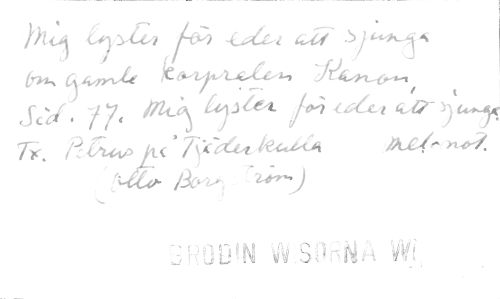 Mig lyster för eder att sjunga
om gamle korpralen Kanon,
Sid. 77. Mig lyster för eder att sjunga
Tx. Petrus på Tjäderkulla mel.-not.
(Otto Borgström)
GRODIN W.SORNA W